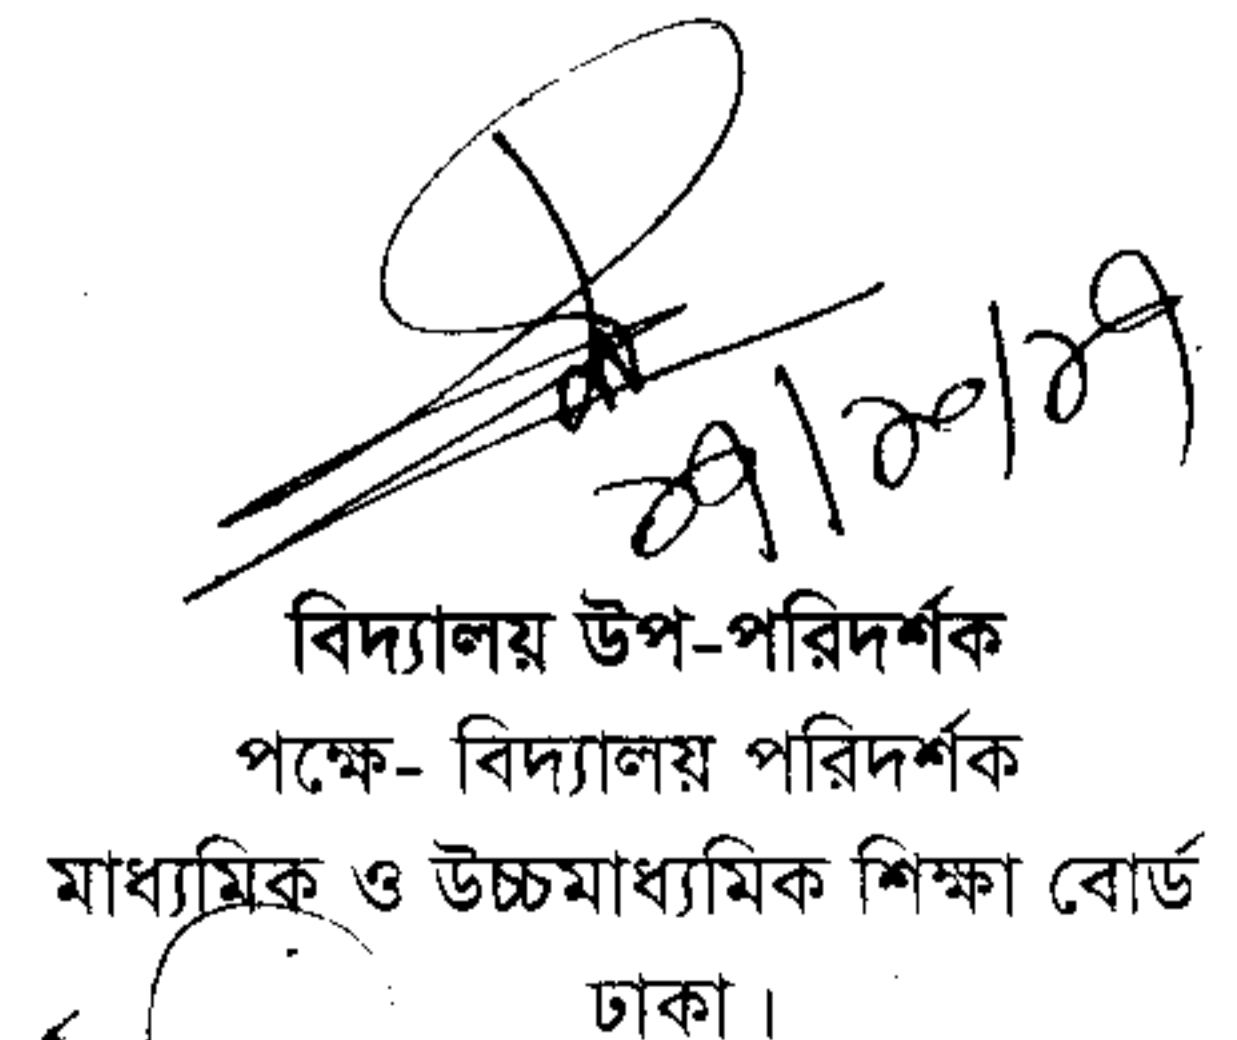 ২৭/২০/২৭
বিদ্যালয় উপ-পরিদর্শক
পক্ষে- বিদ্যালয় পরিদর্শক
মাধ্যমিক ও উচ্চমাধ্যমিক শিক্ষা বোর্ড
ঢাকা।